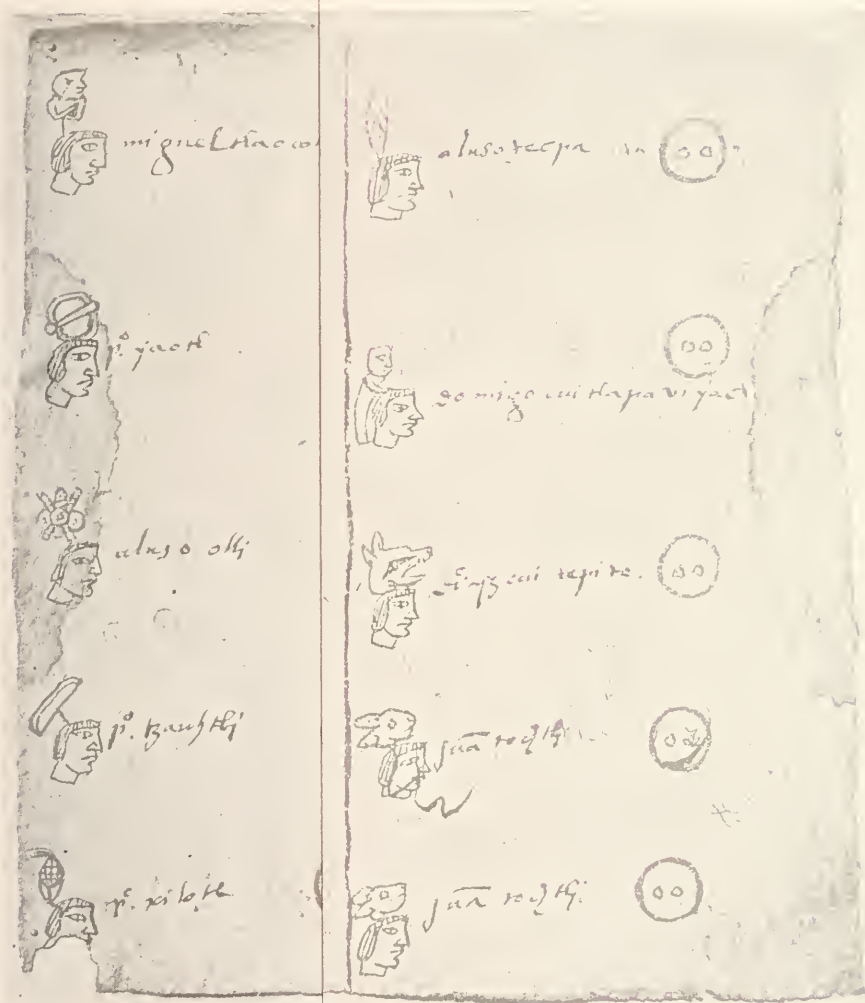 miguel tlaco
pº. yaotl
aluso olli
pº. tzauhtli
pº. xilotl
aluso tecpa
domigo cuitlapa vi
cui tepito.
juā tochtli
juā tochtli.